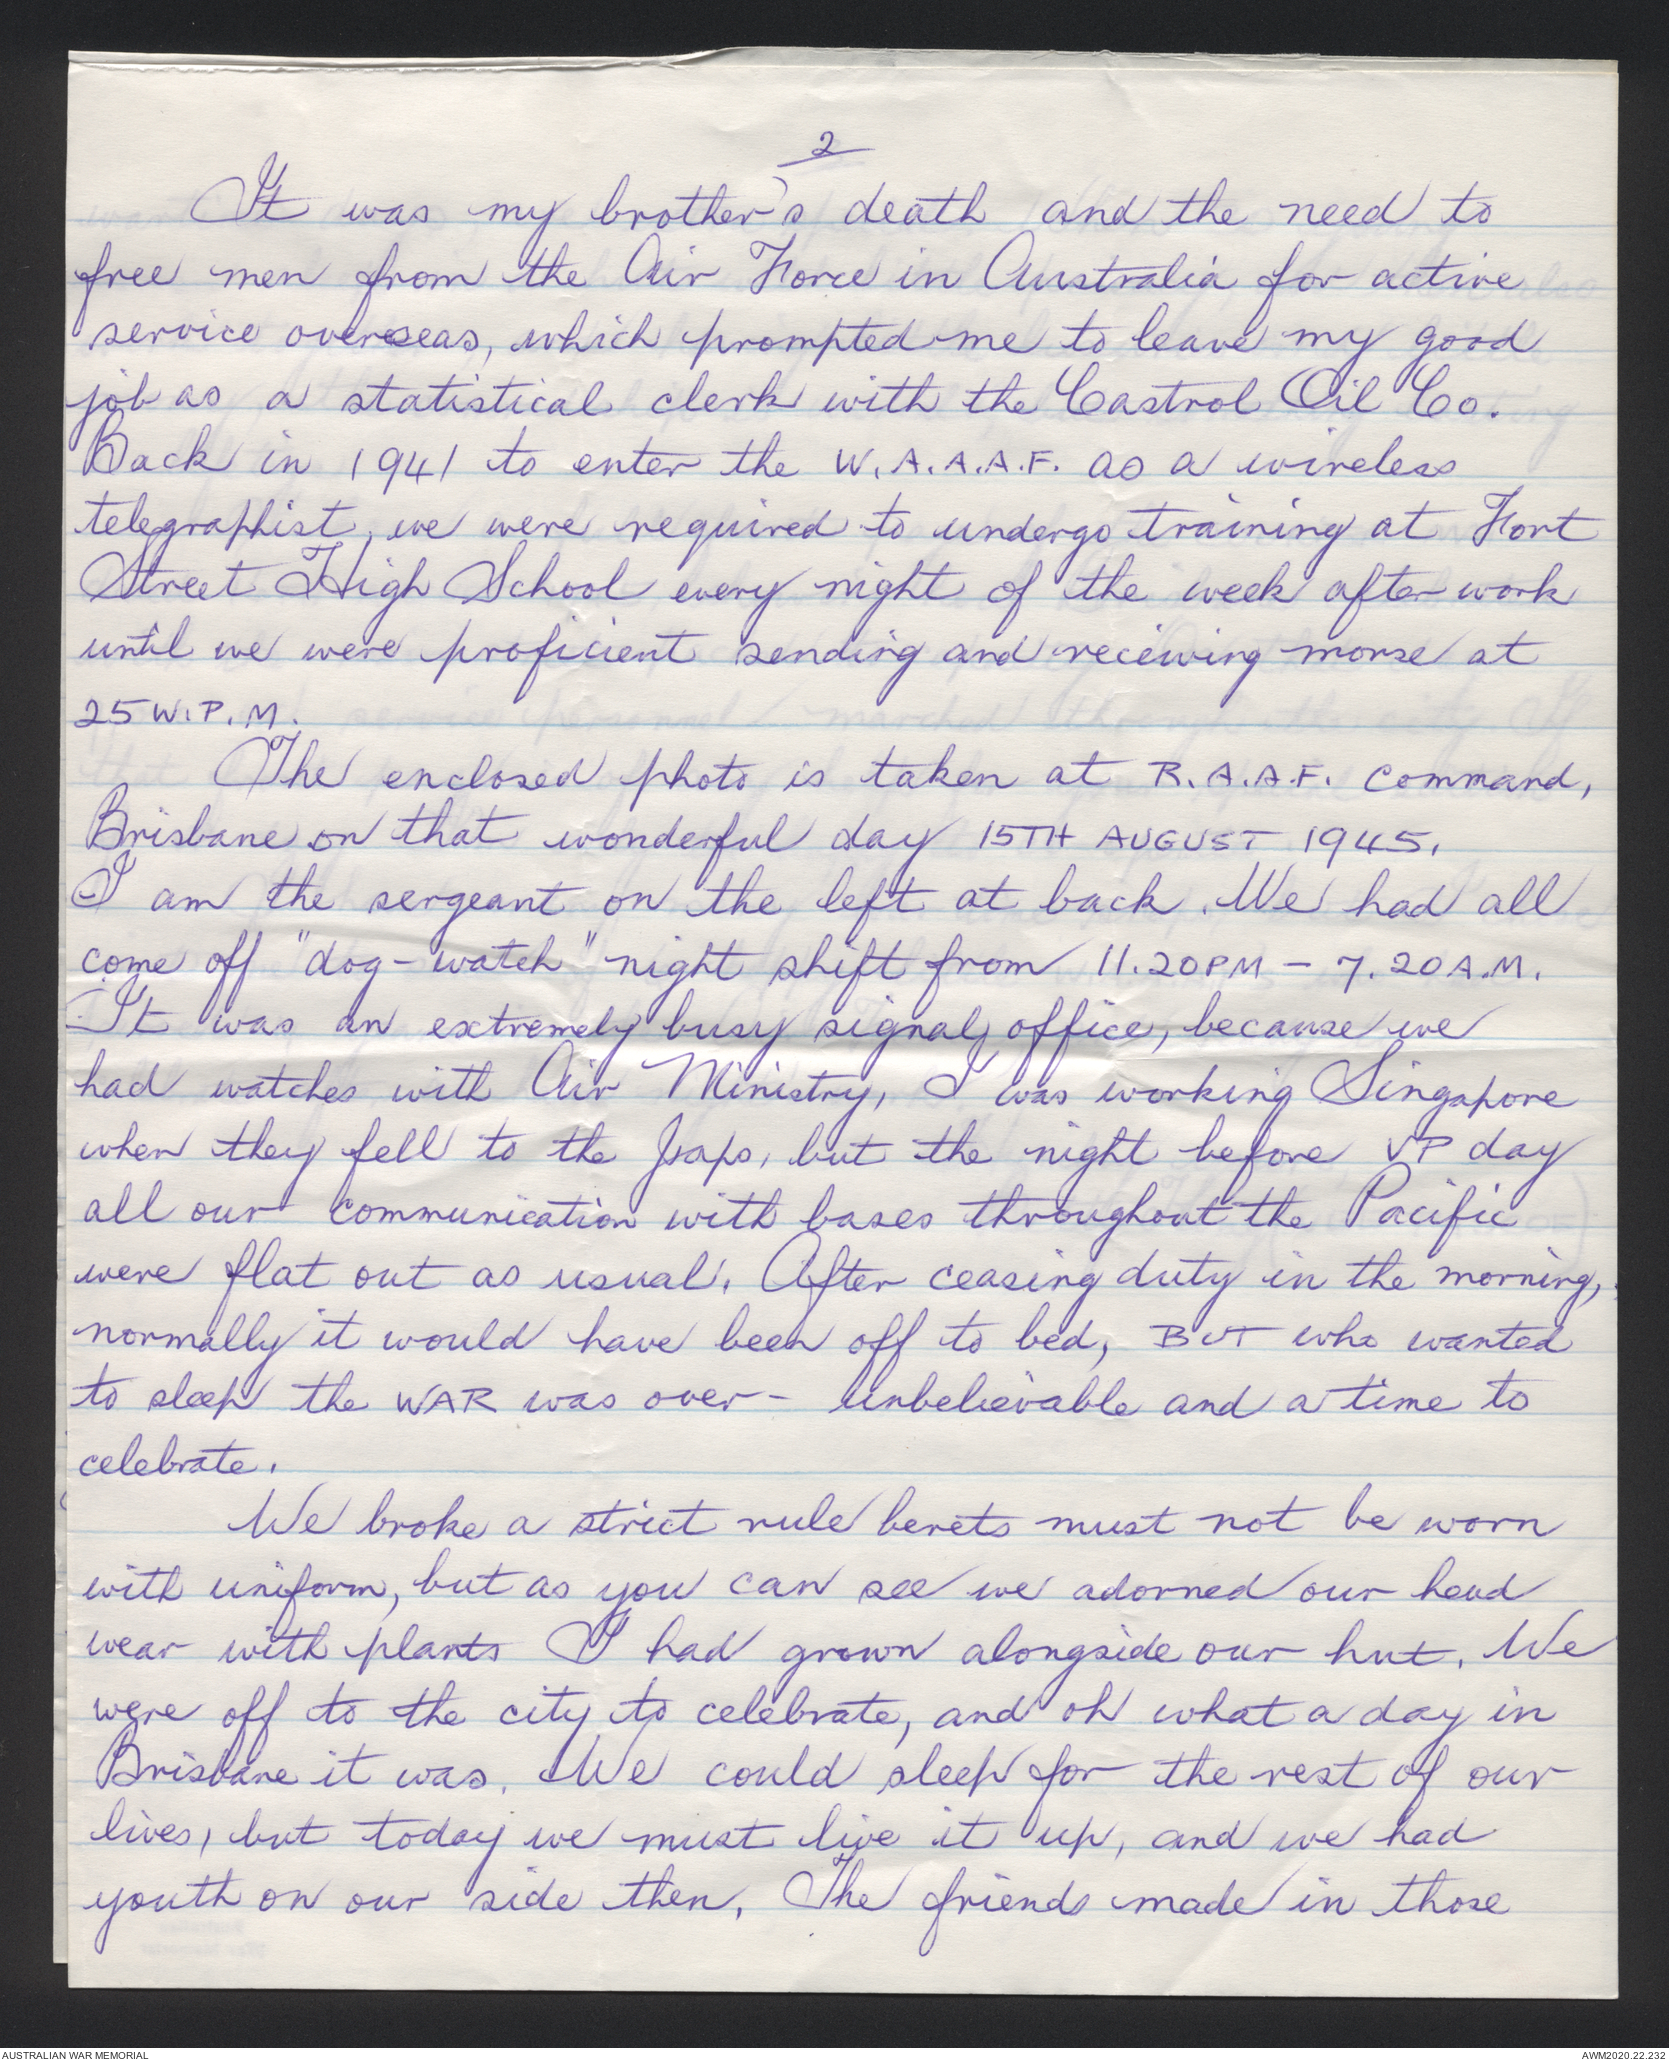 2
It was my brother's death and the need to
free men from the Air Force in Australia for active
service overseas, which prompted me to leave my good
job as a statistical clerk with the Castrol Oil Co.
Back in 1941 to enter the W.A.A.A.F. as a wireless
telegraphist, we were required to undergo training at Fort
Street High School every night of the week after work
until we were proficient sending and receiving morse at
25 W.P.M.
The enclosed photo is taken at R.A.A.F. Command,
Brisbane on that wonderful day 15TH AUGUST 1945.
I am the sergeant on the left at back. We had all
come off "dog-watch" night shift from 11.20PM - 7.20A.M.
It was an extremely busy signal office, because we
had watches with Air Ministry, I was working Singapore
when they fell to the Japs, but the night before VP day
all our communication with bases throughout the Pacific
were flat out as usual. After ceasing duty in the morning,
normally it would have been off to bed, BUT who wanted
to sleep the WAR was over - unbelievable and a time to
celebrate.
We broke a strict rule berets must not be worn
with uniform, but as you can see we adorned our head
wear with plants I had grown alongside our hut. We
were off to the city to celebrate, and oh what a day in
Brisbane it was. We could sleep for the rest of our
lives, but today we must live it up, and we had
youth on our side then. The friends made in those
AUSTRALIAN WAR MEMORIAL
AWM2020.22.232